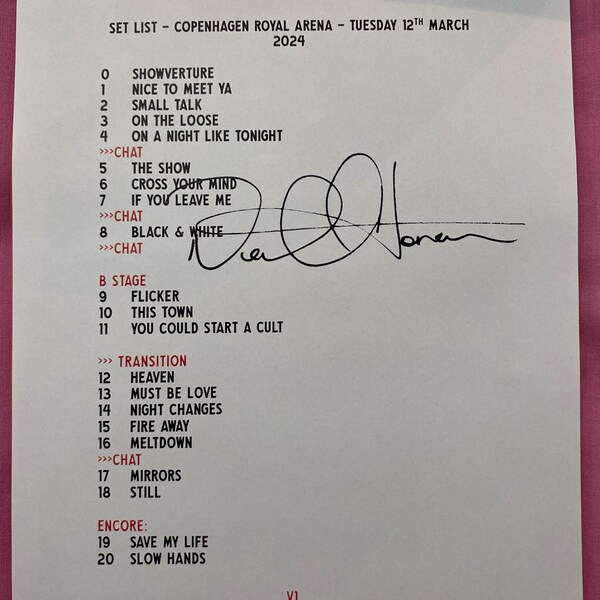 SET LIST – COPENHAGEN ROYAL ARENA – TUESDAY 12TH MARCH
2024
0 SHOWVERTURE
1 NICE TO MEET YA
2 SMALL TALK
3 ON THE LOOSE
4 ON A NIGHT LIKE TONIGHT
>>>CHAT
5 THE SHOW
6 CROSS YOUR MIND
7 IF YOU LEAVE ME
>>>CHAT
8 BLACK & WHITE
>>>CHAT
Niall Horan
B STAGE
9 FLICKER
10 THIS TOWN
11 YOU COULD START A CULT
>>> TRANSITION
12 HEAVEN
13 MUST BE LOVE
14 NIGHT CHANGES
15 FIRE AWAY
16 MELTDOWN
>>>CHAT
17 MIRRORS
18 STILL
ENCORE:
19 SAVE MY LIFE
20 SLOW HANDS
V1